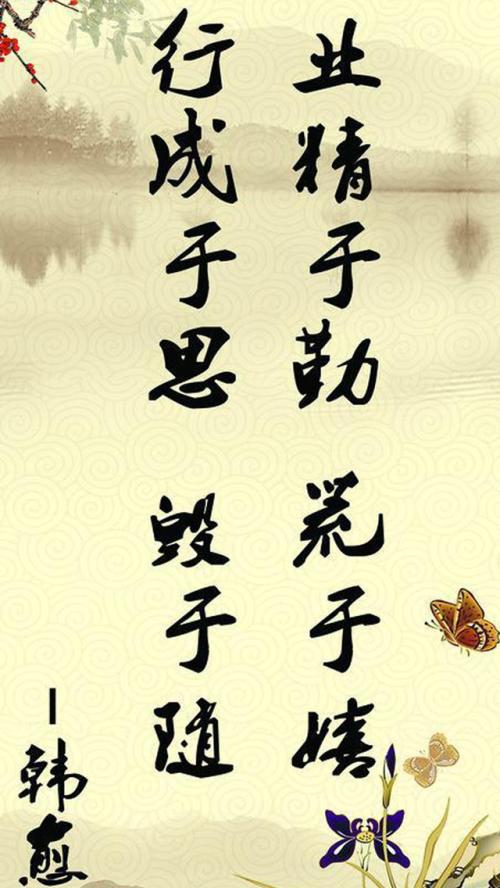 业精于勤 荒于嬉
行成于思 毁于随
—韩愈